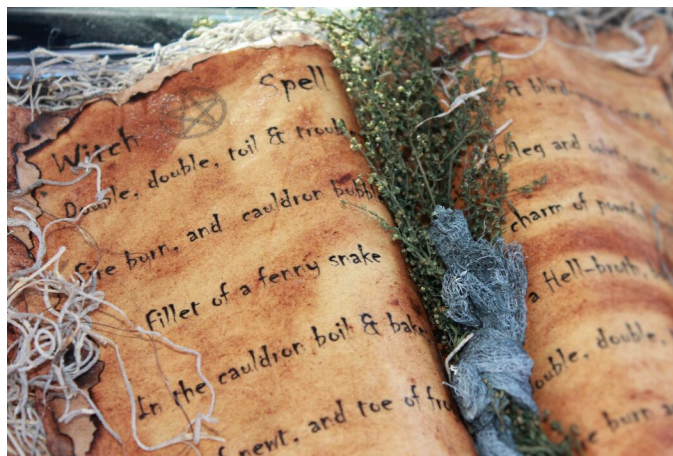 Witch Spell
Double, double, toil & trouble,
fire burn, and cauldron bubble
fillet of a fenny snake
In the cauldron boil & bake
of newt, and toe of
&
leg and
charm of
a Hell-broth,
double, double,
burn